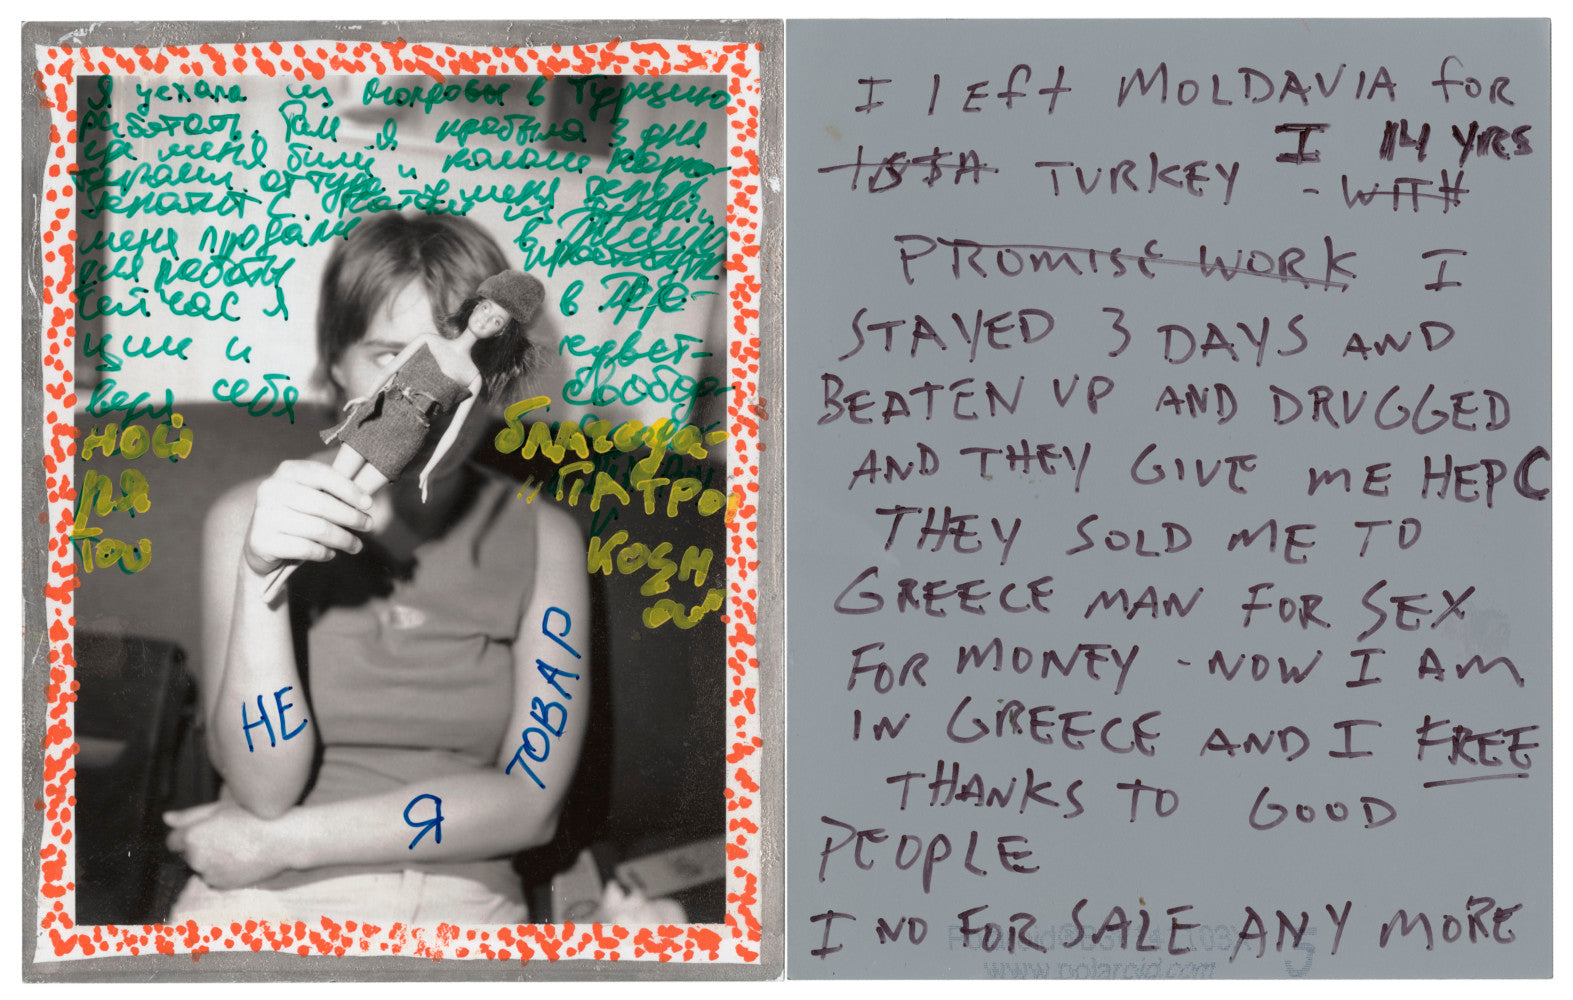 Я уехала из Молдовы в Турцию
работать. Там я пробыла 3 дня
где меня били и кололи нарко-
меня теперь
гепатит С
меня продали в Грецию
для работы
сейчас я в Гре-
ции и чувст-
вую себя свободо-
ной благода-
ря "ГИАТРОИ
του ΚΟΣΜ
ου
НЕ
Я
ТОВАР
I LEFT MOLDAVIA FOR
TURKEY - WITH I 14 YRS
PROMISE WORK I
STAYED 3 DAYS AND
BEATEN UP AND DRUGGED
AND THEY GIVE ME HEP C
THEY SOLD ME TO
GREECE MAN FOR SEX
FOR MONEY - NOW I AM
IN GREECE AND I FREE
THANKS TO GOOD
PEOPLE
I NO FOR SALE ANY MORE
www.polaroid.com
5